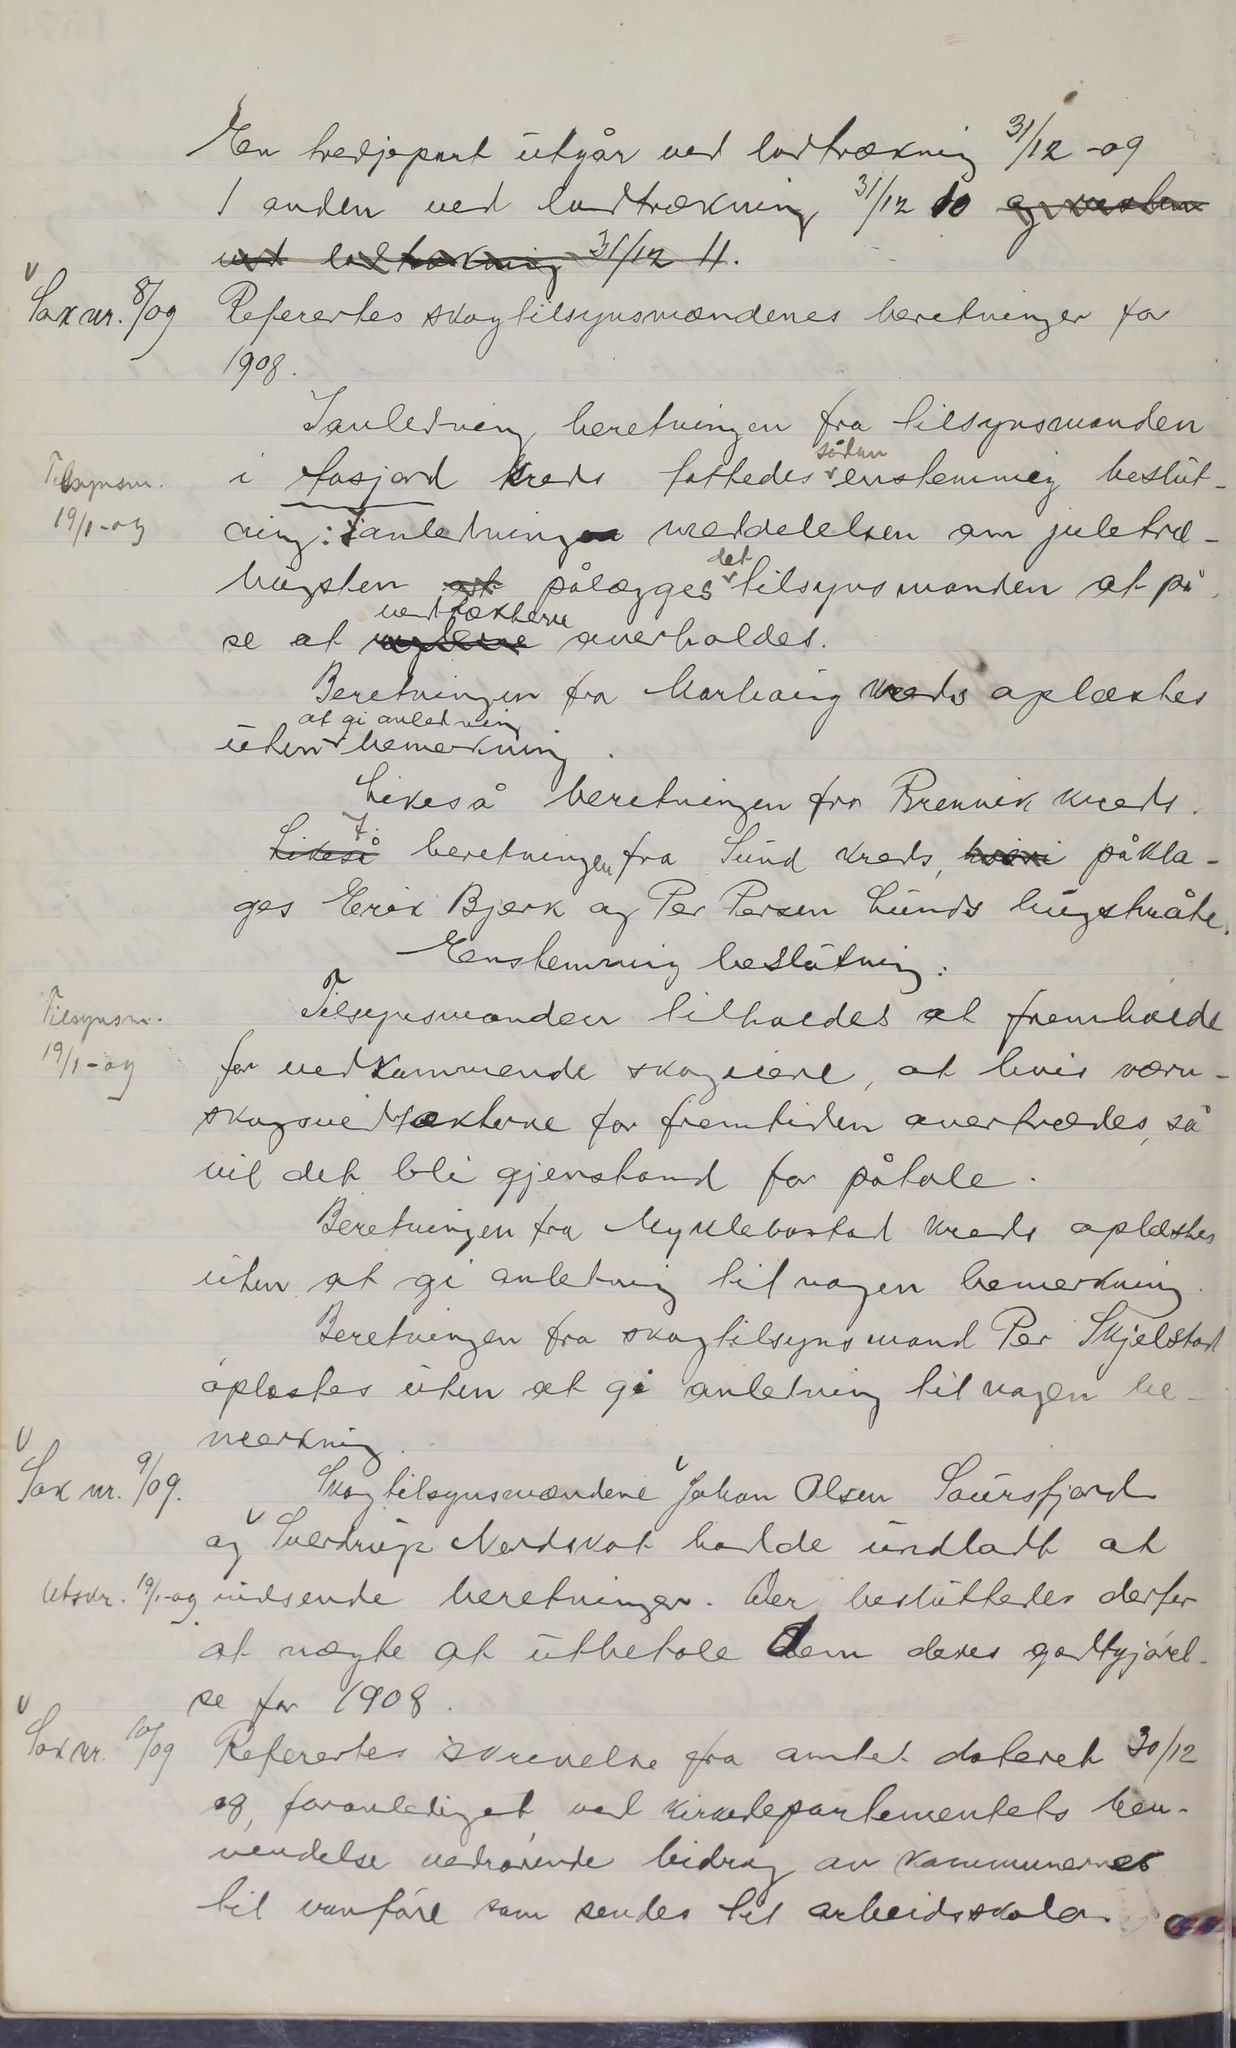 En tredjepart utgår ved lodtrækning 31/12 -09
1 anden ved lodtrækning 31/12 10 og resten
ved lodtrækning 31/12 11.
Sak nr. 8/09 Refertes skogtilsynsmændenes beretninger for
1908.
I anledning beretningen fra tilsynsmanden
Tilsynsm. i Åasjord kreds fattedes sådan enstemmig beslut-
19/1-09 ning: I anledning meddelelsen om juletræ-
hugsten at pålægges det tilsynsmanden at på-
se at vedtækterne overholdes.
Beretningen fra Marhaug kreds oplæstes
uten at gi anledning bemerkning.
Likeså beretningen fra Brennvik kreds.
Likeså I beretningen fra Sund kreds, hvori påkla-
ges Erik Bjerk og Per Persen Sunds hugstmåte.
Enstemmig beslutning:
Tilsynsm. Tilsynsmanden tilholdes at fremholde
19/1-09 for vedkommende skogeiere, at hvis værn-
skogsvedtækterne for fremtiden overtrædes, så
vil det bli gjenstand for påtale.
Beretningen fra Myklebostad kreds oplæstes
uten at gi anledning til nogen bemerkning.
Beretningen fra skogtilsynsmand Per Skjelstad
oplæstes uten at gi anledning til nogen be-
merkning.
Sak nr. 9/09. Skogtilsynsmændene Johan Olsen Saursfjord
og Sverdrup Nordskot hadde undladt at
Utskr. 19/1-09 indsende beretninger. Der besluttedes derfor
at nægte at utbetale dem deres godtgjørel-
se for 1908.
Sak nr. 10/09 Refertes skrivelse fra amtet dateret 30/12
08, foranlediget ved kirkedepartementets hen-
vendelse vedrørende bidrag av kommunernes
til vanføre som sendes til arbeidsskoler.